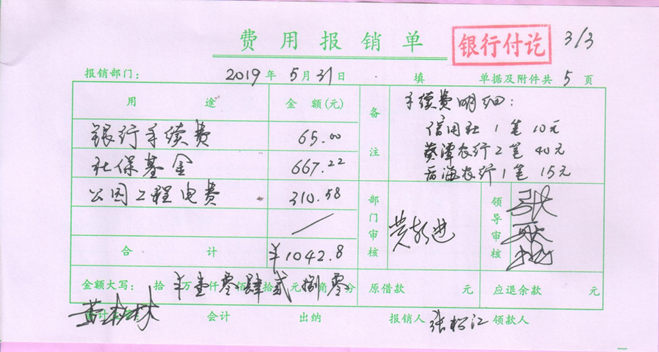 费用报销单
银行付讫 3/3
报销部门： 2019年5月31日 填 单据及附件共5页
用途 金额(元) 备注
手续费明细：
银行手续费 65.00 信用社1笔10元
社保基金 667.22 葵潭农行2笔40元
公园工程电费 310.58 后海农行1笔15元
部门审核 领导审核
合计 ¥1042.8
金额大写： 拾 ¥壹万零仟肆佰贰拾元捌角零分 原借款 元 应退余款 元
会计 出纳 报销人 领款人